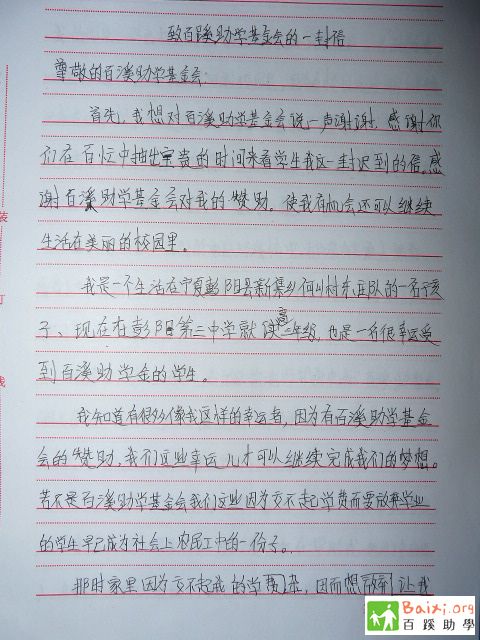 致百蹊助学基金会的一封信
尊敬的百溪助学基金会:
首先,我想对百溪助学基金会说一声谢谢,感谢你
们在百忙中抽出宝贵的时间来看学生我这一封迟到的信,感
谢百溪助学基金会对我的赞助。使我有机会还可以继续
生活在美丽的校园里。
我是一个生活在宁夏彭阳县新集乡何山村东庄队的一名孩
子、现在在彭阳第三中学就读高二年级,也是一名很幸运受
到百溪助学金的学生。
我知道有很多像我这样的幸运者,因为有百溪助学基金
会的赞助,我们这些幸运儿才可以继续完成我们的梦想。
若不是百溪助学基金会我们这些因为交不起学费而要放弃学业
的学生早已成为社会上农民工中的一份子。
那时家里因为交不起我的学费,因而想放到让我
装
订
线
Baixi.org
百蹊助學